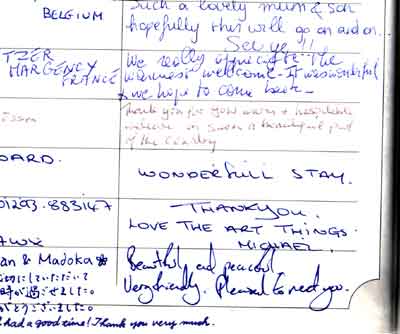 BELGIUM
Such a lovely mum & son
hopefully this will go on and on.
See ye !!
TZER
MARGENCY
FRANCE
We really appreciate the
warmest welcome - It was wonderful
we hope to come back -
Thank you for your warm + hospitable
welcome
of the Country
OARD.
WONDERFULL STAY.
01293.883147
THANKYOU.
LOVE THE ART THINGS.
MICHAEL.
an & Madoka
Beautiful and peaceful
Very friendly. Pleased to meet you.
切にしていただいて
時が過ごせました。
がとうございました。
had a good time! Thank you very much.